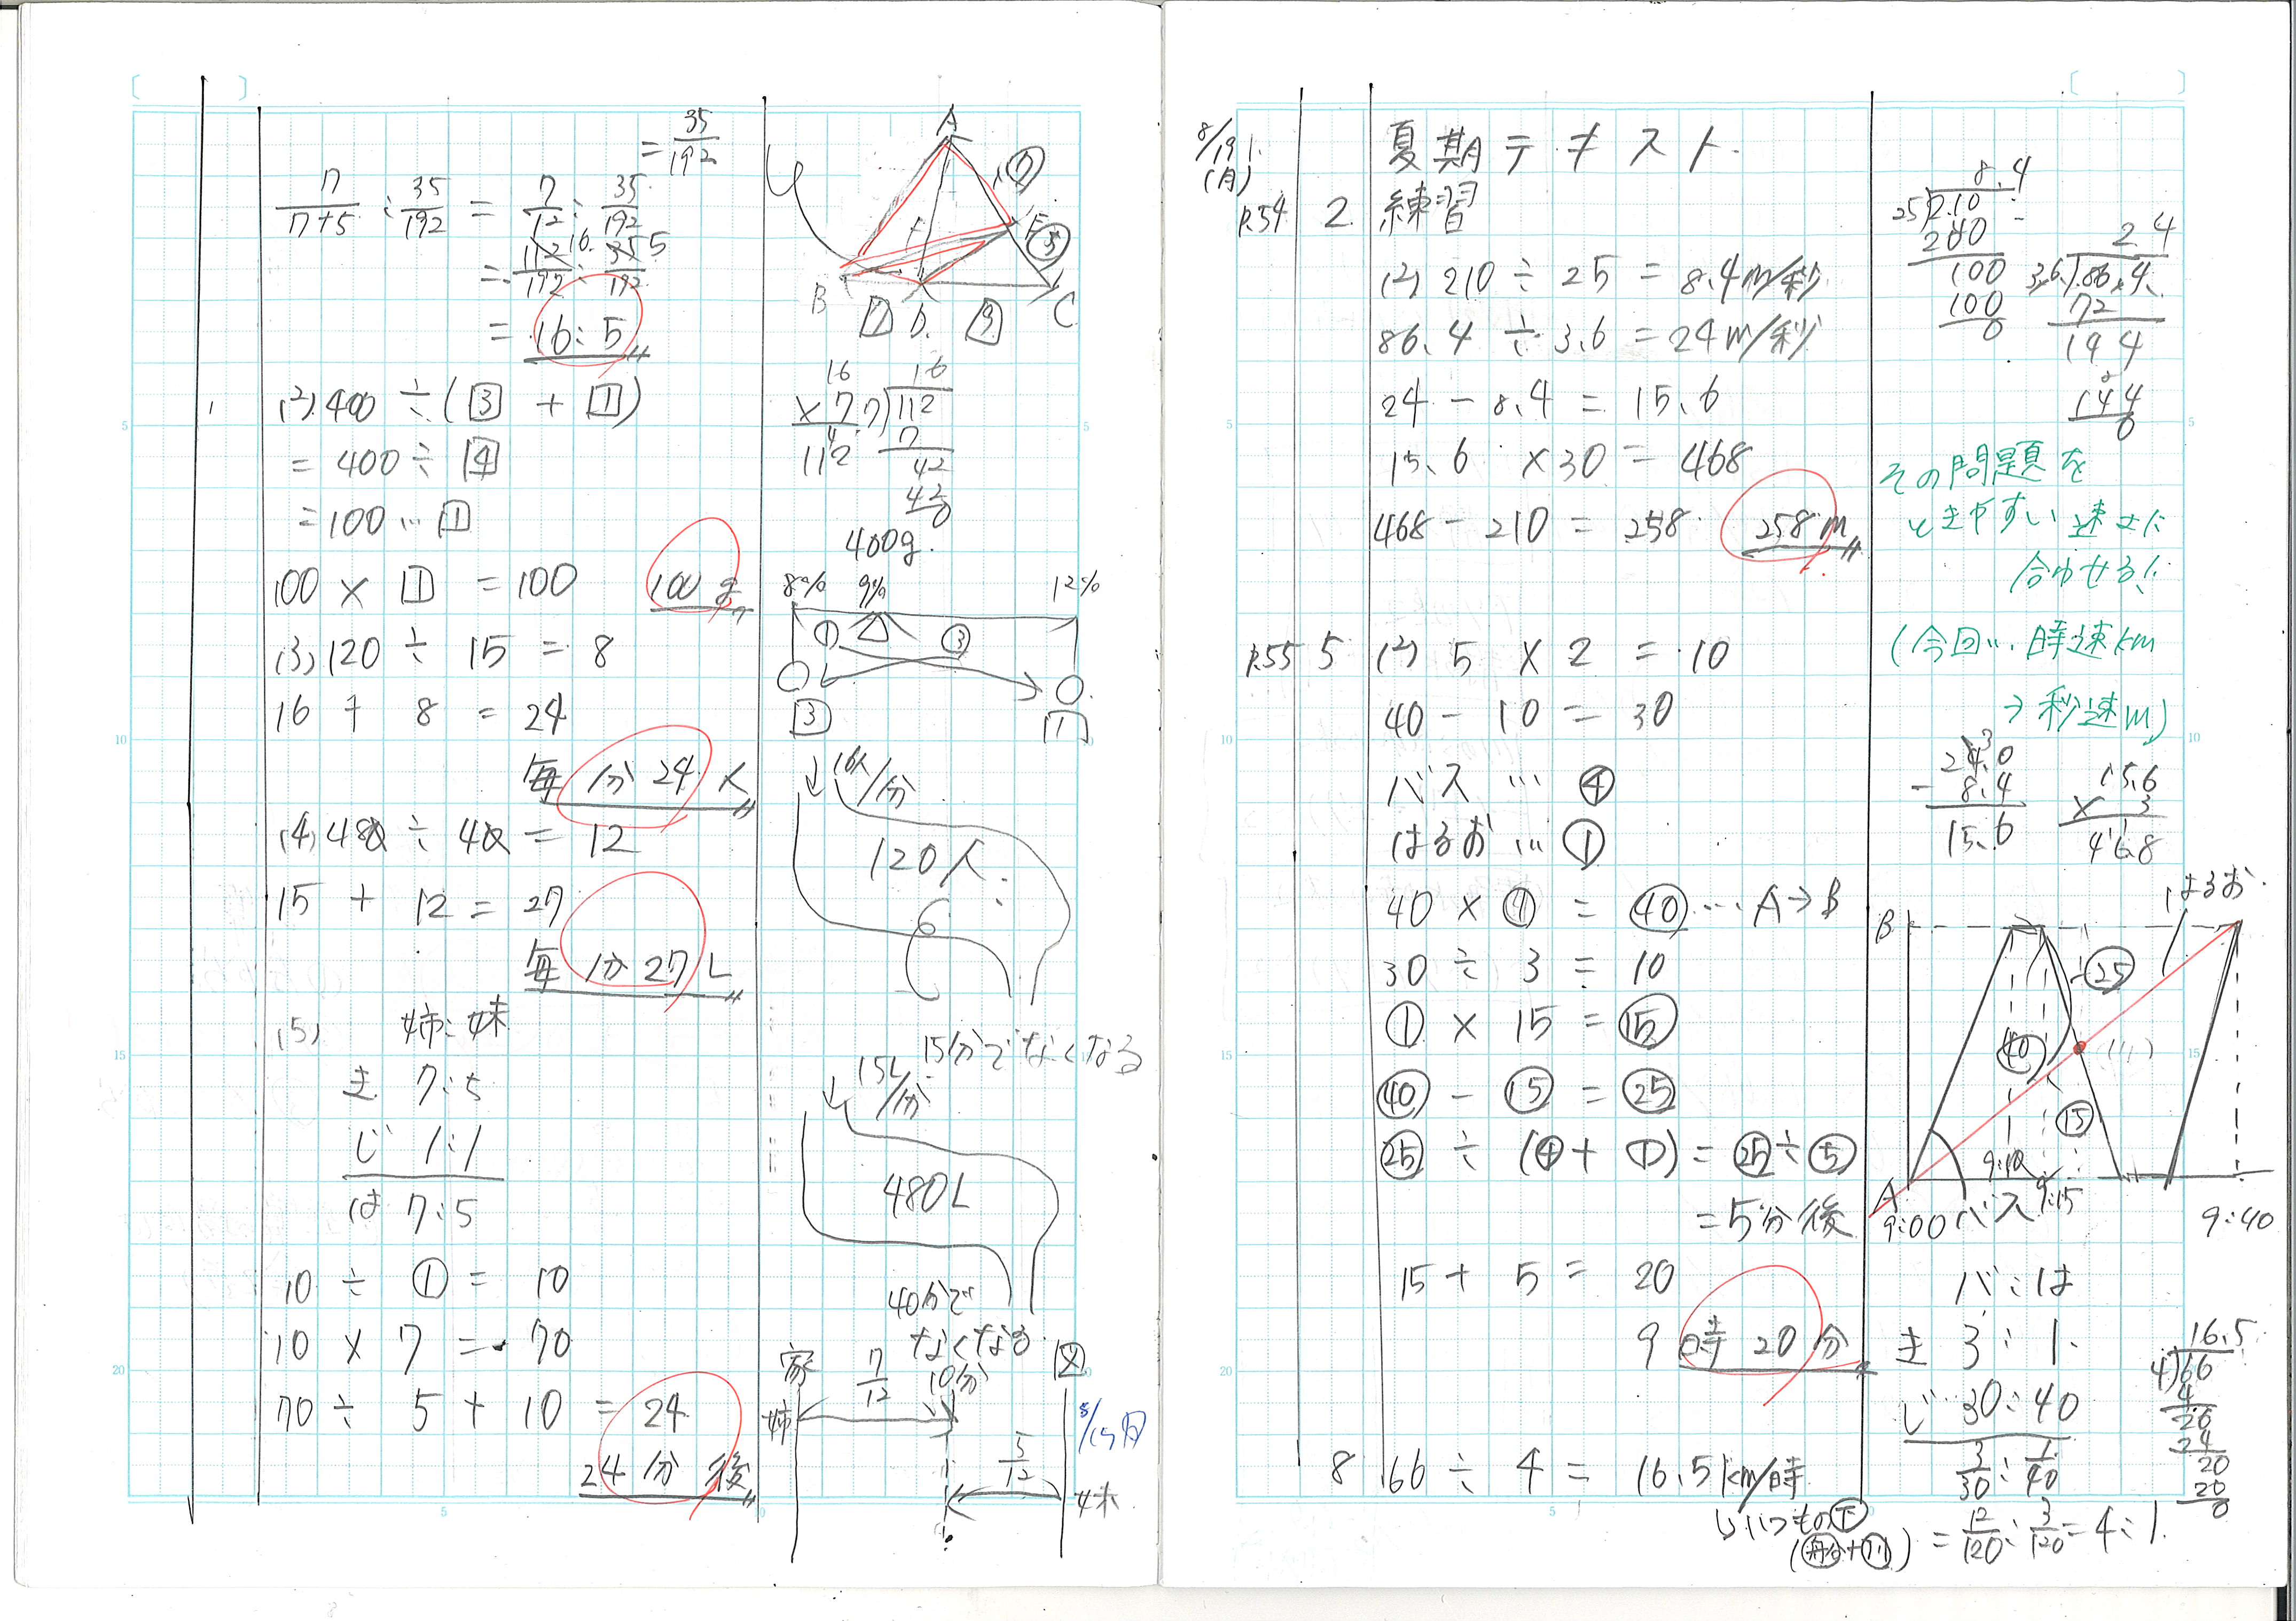 = 35/192
7/(7+5) : 35/192 = 7/12 : 35/192
= 112/192 : 35/192
16 5
= 16:5
(2) 400 ÷ (3 + 1)
= 400 ÷ 4
= 100 … 1
100 × 1 = 100 100g
(3) 120 ÷ 15 = 8
16 + 8 = 24
毎分24人
(4) 480 ÷ 40 = 12
15 + 12 = 27
毎分27L
(5) 姉:妹
き 7:5
じ 1:1
は 7:5
10 ÷ ① = 10
10 × 7 = 70
70 ÷ 5 + 10 = 24
24分後
A
⑦
F
⑤
B 7 D 9 C
16
×7
112
16
7)112
7
42
42
0
400g
8% 9% 12%
① ③
3 1
16人/分
120人
15分でなくなる
15L/分
480L
40分で
なくなる
家 7/12 10分
姉
5/12
妹
8/19
(月)
夏期テキスト
P.54 2 練習
(2) 210 ÷ 25 = 8.4m/秒
86.4 ÷ 3.6 = 24m/秒
24 - 8.4 = 15.6
15.6 × 30 = 468
468 - 210 = 258 258m
P.55 5 (2) 5 × 2 = 10
40 - 10 = 30
バス … ④
はるお … ①
40 × ① = ㊵ … A→B
30 ÷ 3 = 10
① × 15 = ⑮
㊵ - ⑮ = ㉕
㉕ ÷ (④ + ①) = ㉕ ÷ ⑤
= 5分後
15 + 5 = 20
9時20分
8 66 ÷ 4 = 16.5km/時
いつもの下
(船+川)
8.4
25)210
200
100
100
0
24
3.6)86.4
72
144
144
0
その問題を
ときやすい速さに
合わせる!
(今回… 時速km
→秒速m)
24.0
- 8.4
15.6
15.6
× 3
46.8
はるお
B
㉕
㊵
⑮
9:10
A 9:15
9:00 バス 9:40
バ:は
き 3:1
じ 30:40
3/30 : 1/40
= 12/120 : 3/120 = 4:1
16.5
4)66
4
26
24
20
20
0